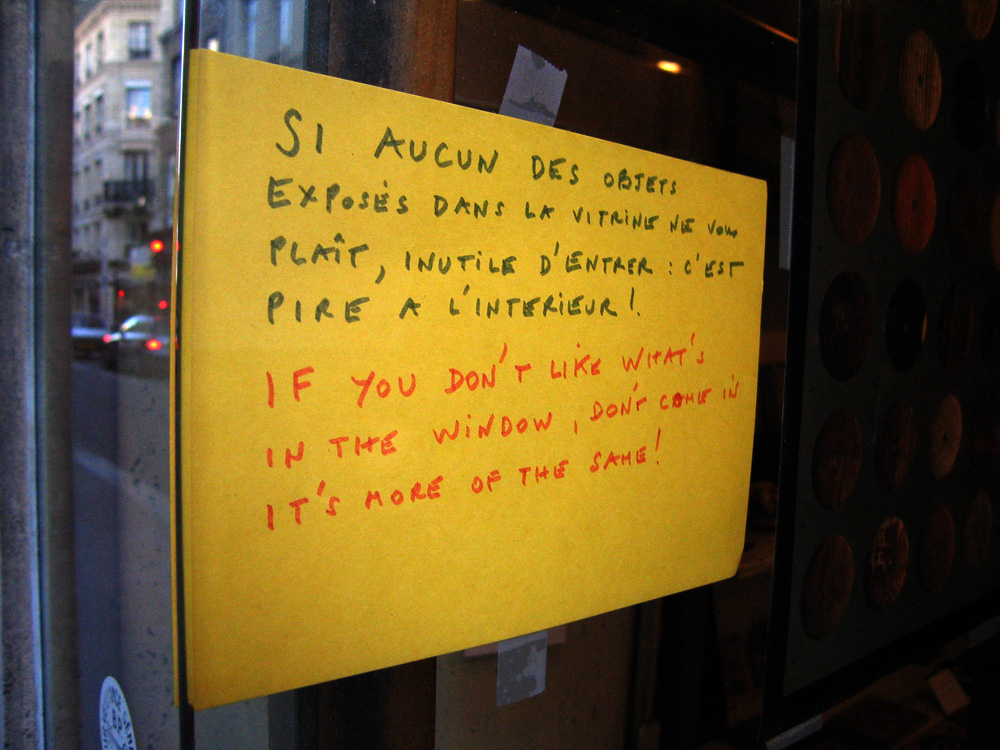 SI AUCUN DES OBJETS
EXPOSÈS DANS LA VITRINE NE VOUS
PLAÎT, INUTILE D'ENTRER : C'EST
PIRE A L'INTERIEUR !
IF YOU DON'T LIKE WHAT'S
IN THE WINDOW, DON'T COME IN
IT'S MORE OF THE SAME!